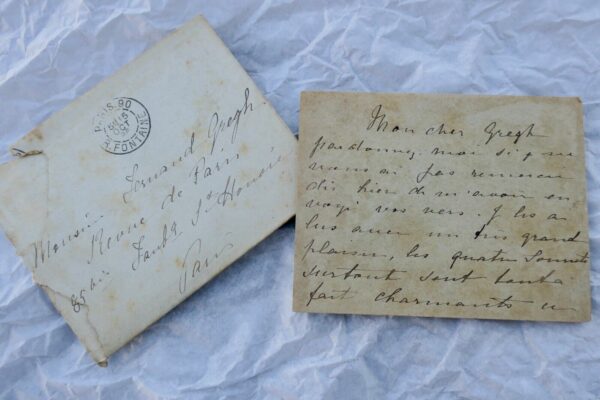 PARIS 90
R. FONTAINE
Monsieur Fernand Gregh
Revue de Paris
85 bis Faubg St Honoré
Paris
Mon cher Gregh
pardonnez-moi si je ne
vous ai pas remercié
dès hier de m'avoir en
voyé vos vers. Je les ai
lus avec un très grand
plaisir, les quatre Sonnets
surtout sont tout à
fait charmants